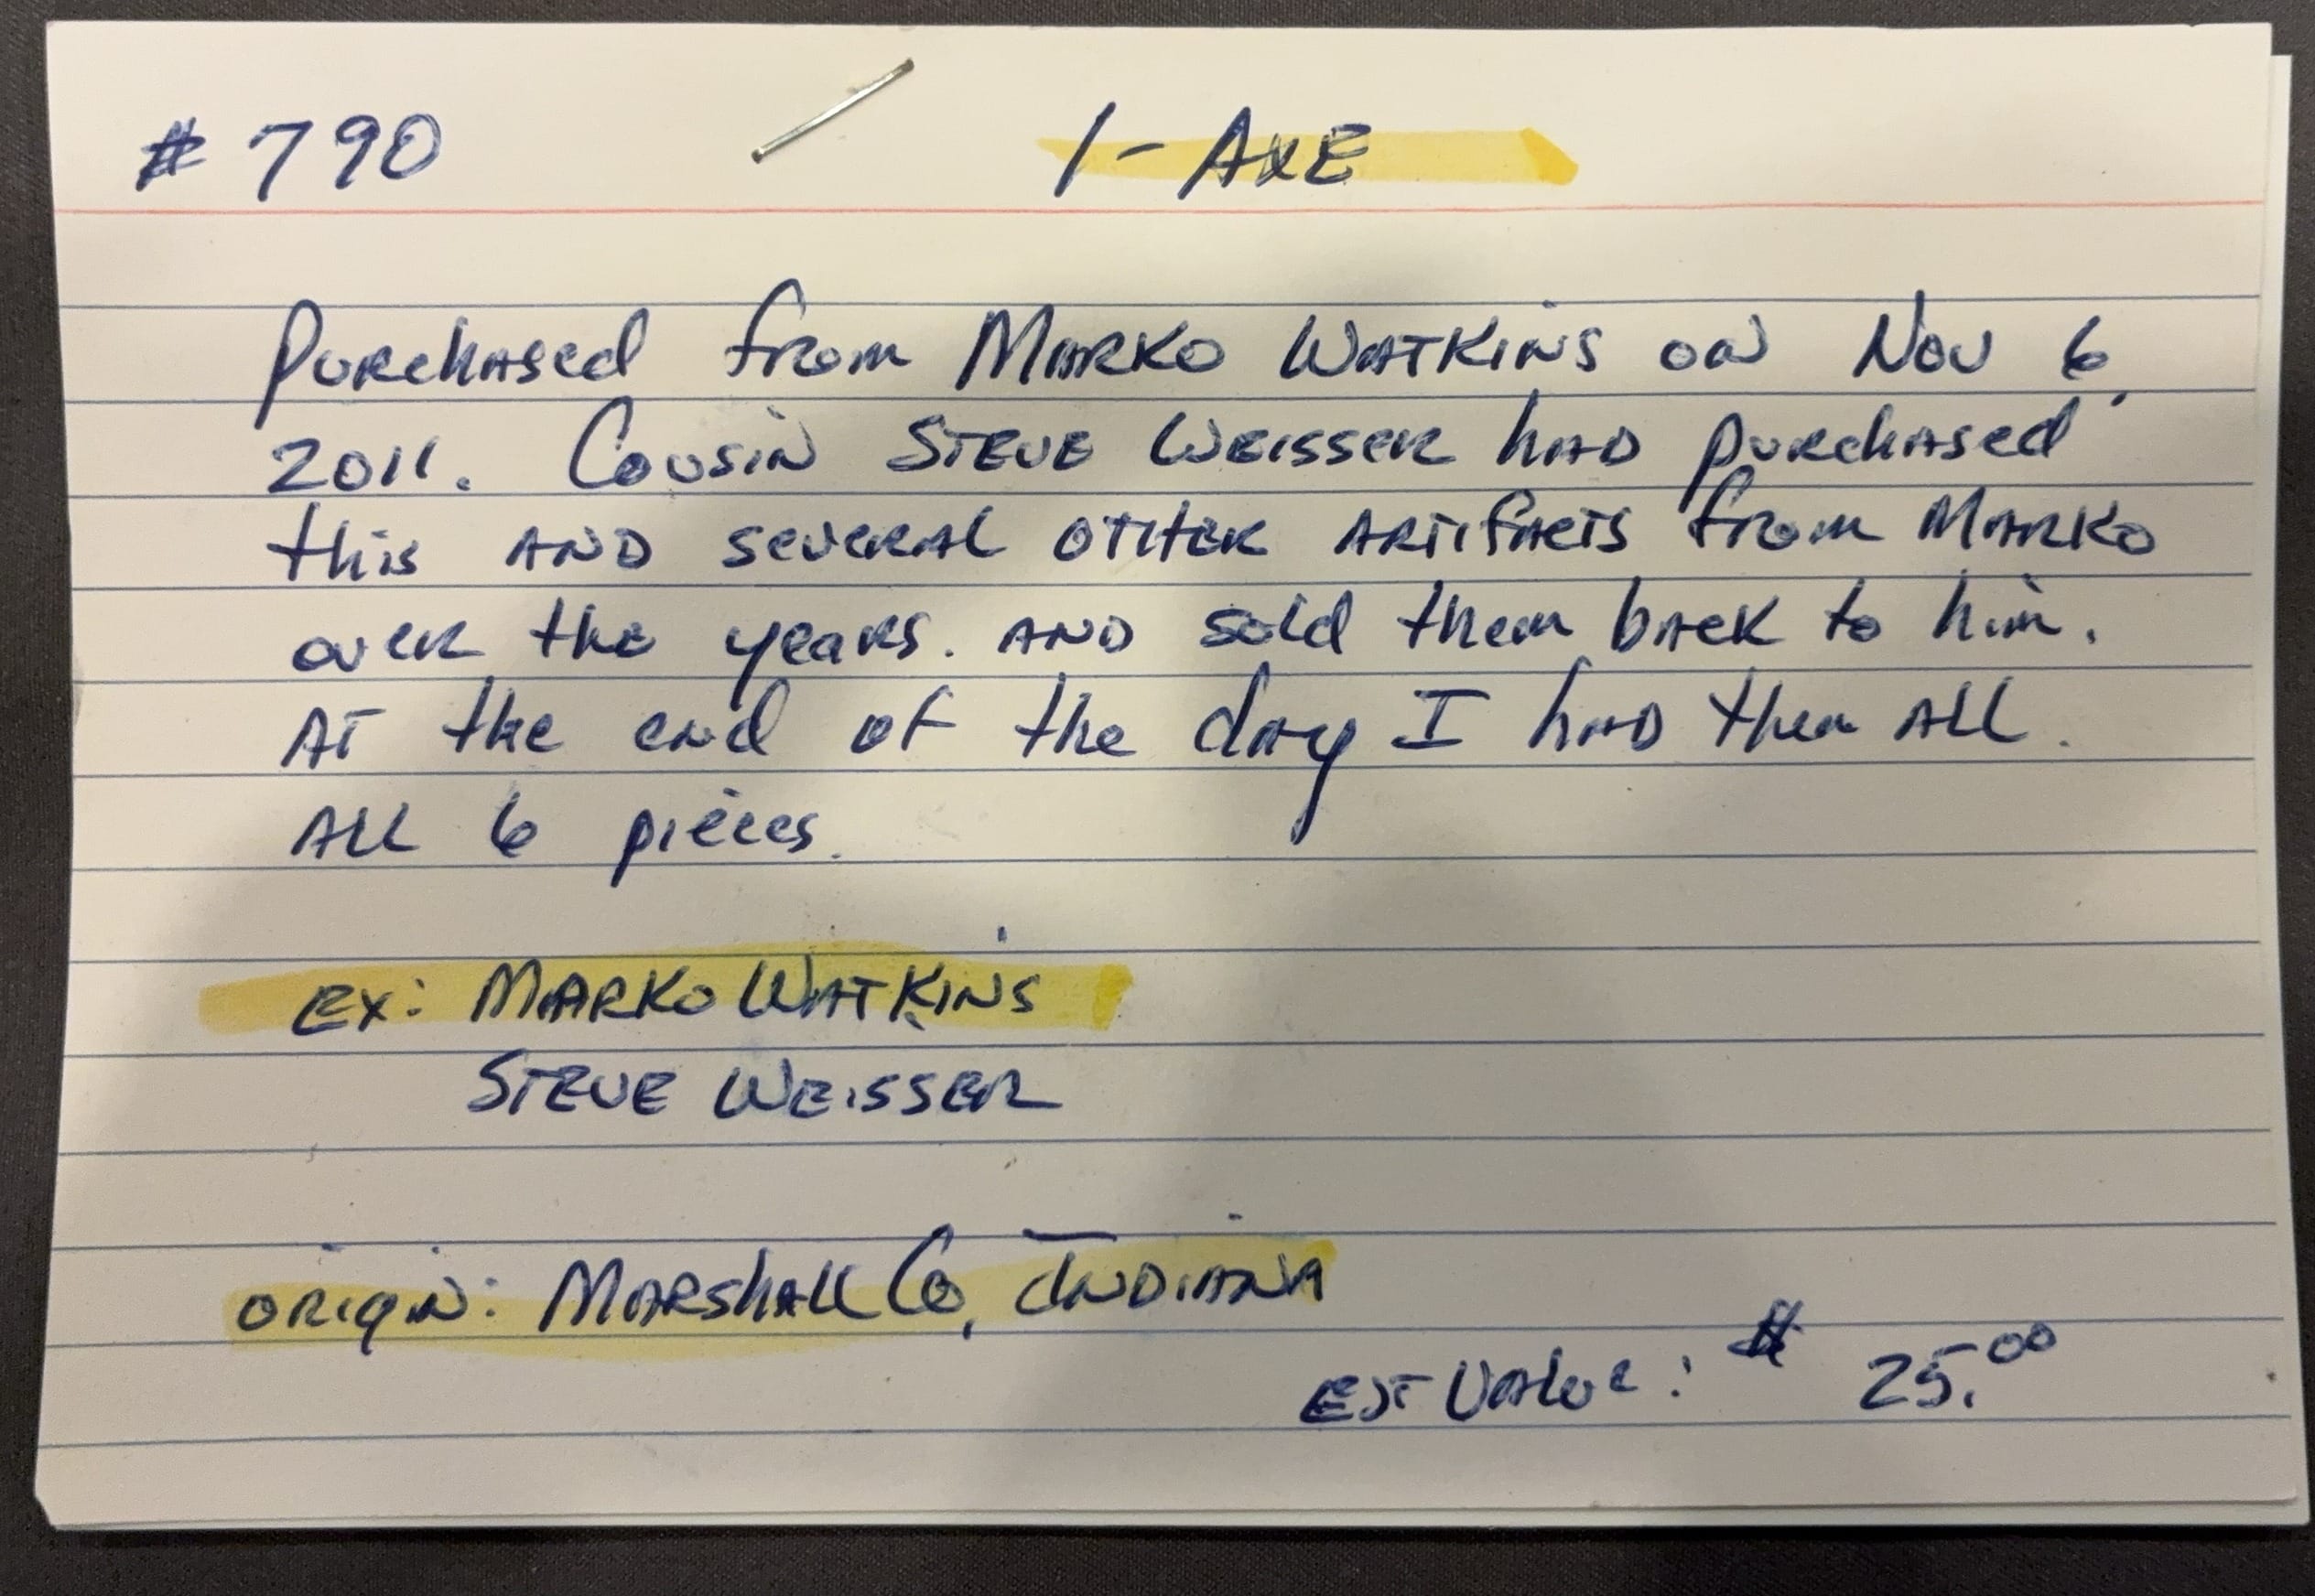 # 790 1- AXE
Purchased from MARKO WATKINS ON NOV 6,
2011. Cousin STEVE WEISSER HAD purchased
this AND several OTHER ARTifacts from MARKO
over the years. AND sold them back to him.
AT the end of the day I HAD them ALL.
ALL 6 pieces.
EX: MARKO WATKINS
STEVE WEISSER
ORIGIN: MARSHALL Co, INDIANA
EST VALUE: $ 25.00